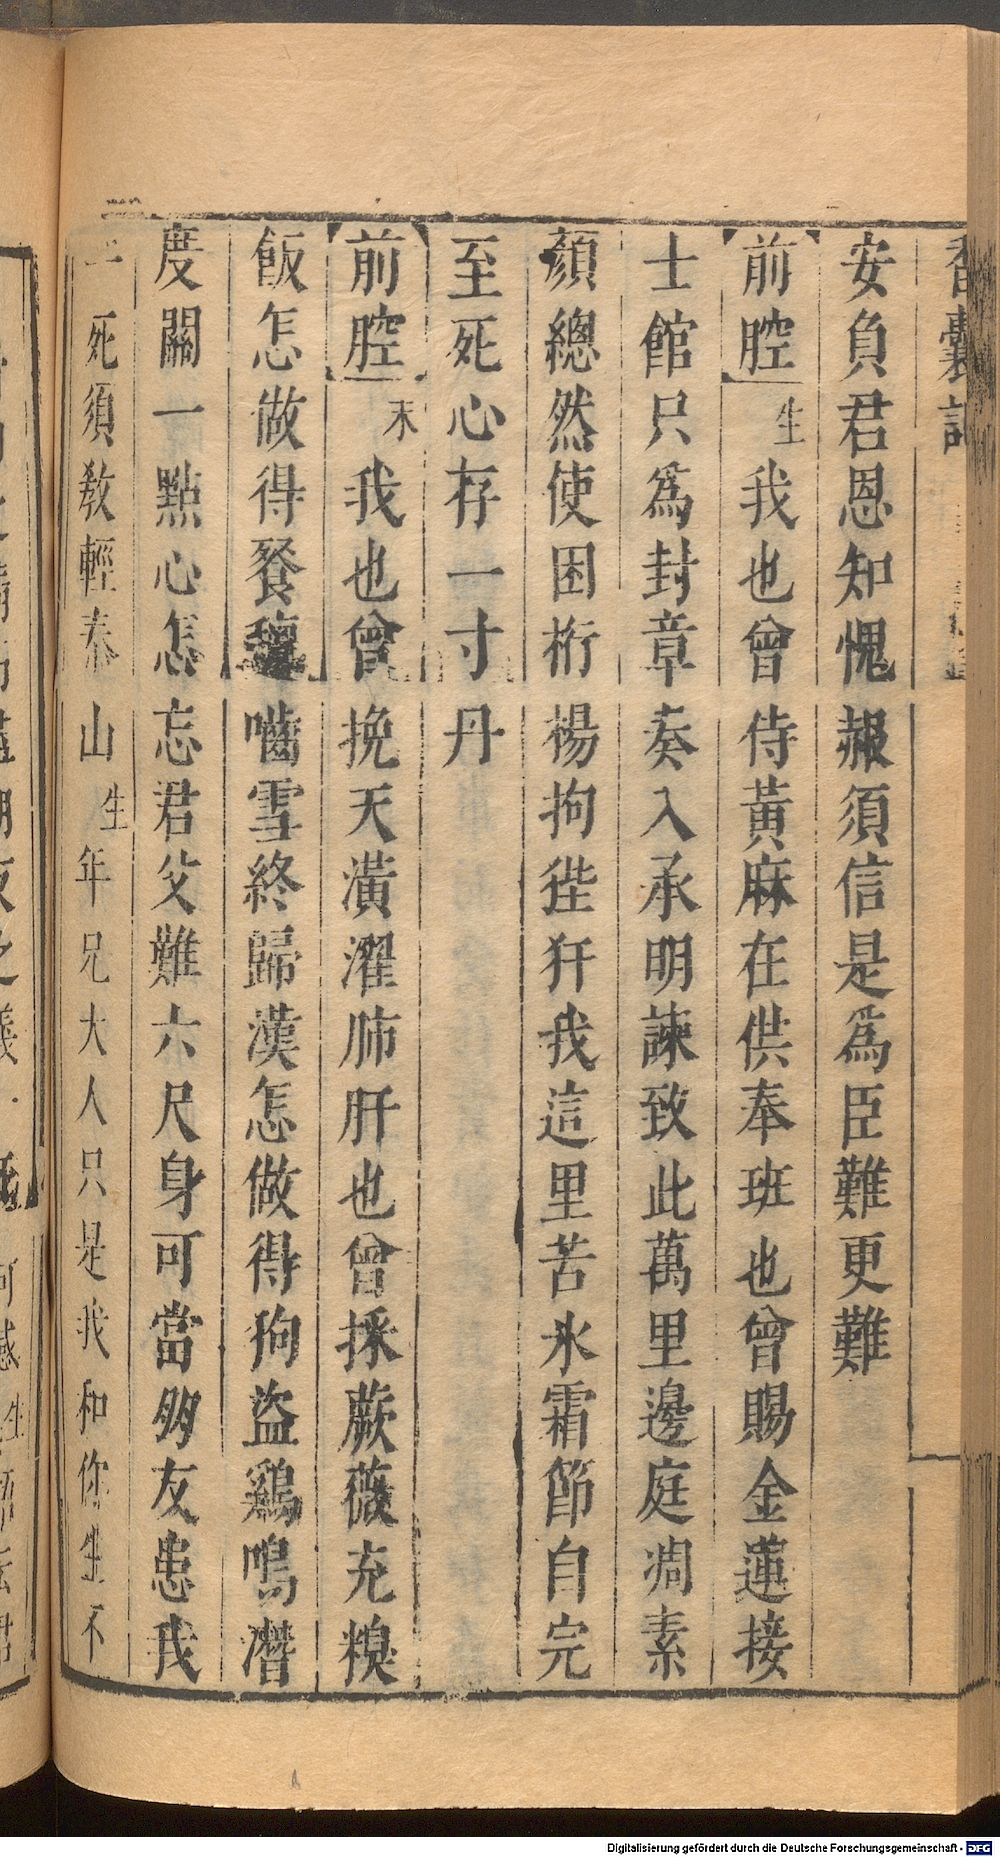 香囊記
安負君恩知愧赧須信是爲臣難更難
前腔 生 我也曾侍黃麻在供奉班也曾賜金蓮接
士館只爲封章奏入承明諫致此萬里邊庭凋素
顏總然使困桁楊拘狴犴我這里苦氷霜節自完
至死心存一寸丹
前腔 末 我也曾挽天潢濯肺肝也曾採蕨薇充糗
飯怎做得餐氊嚙雪終歸漢怎做得狗盜鷄鳴潛
度關一點心怎忘君父難六尺身可當朋友患我
一死須教輕泰山 生 年兄大人只是我和你生不
Digitalisierung gefördert durch die Deutsche Forschungsgemeinschaft - DFG